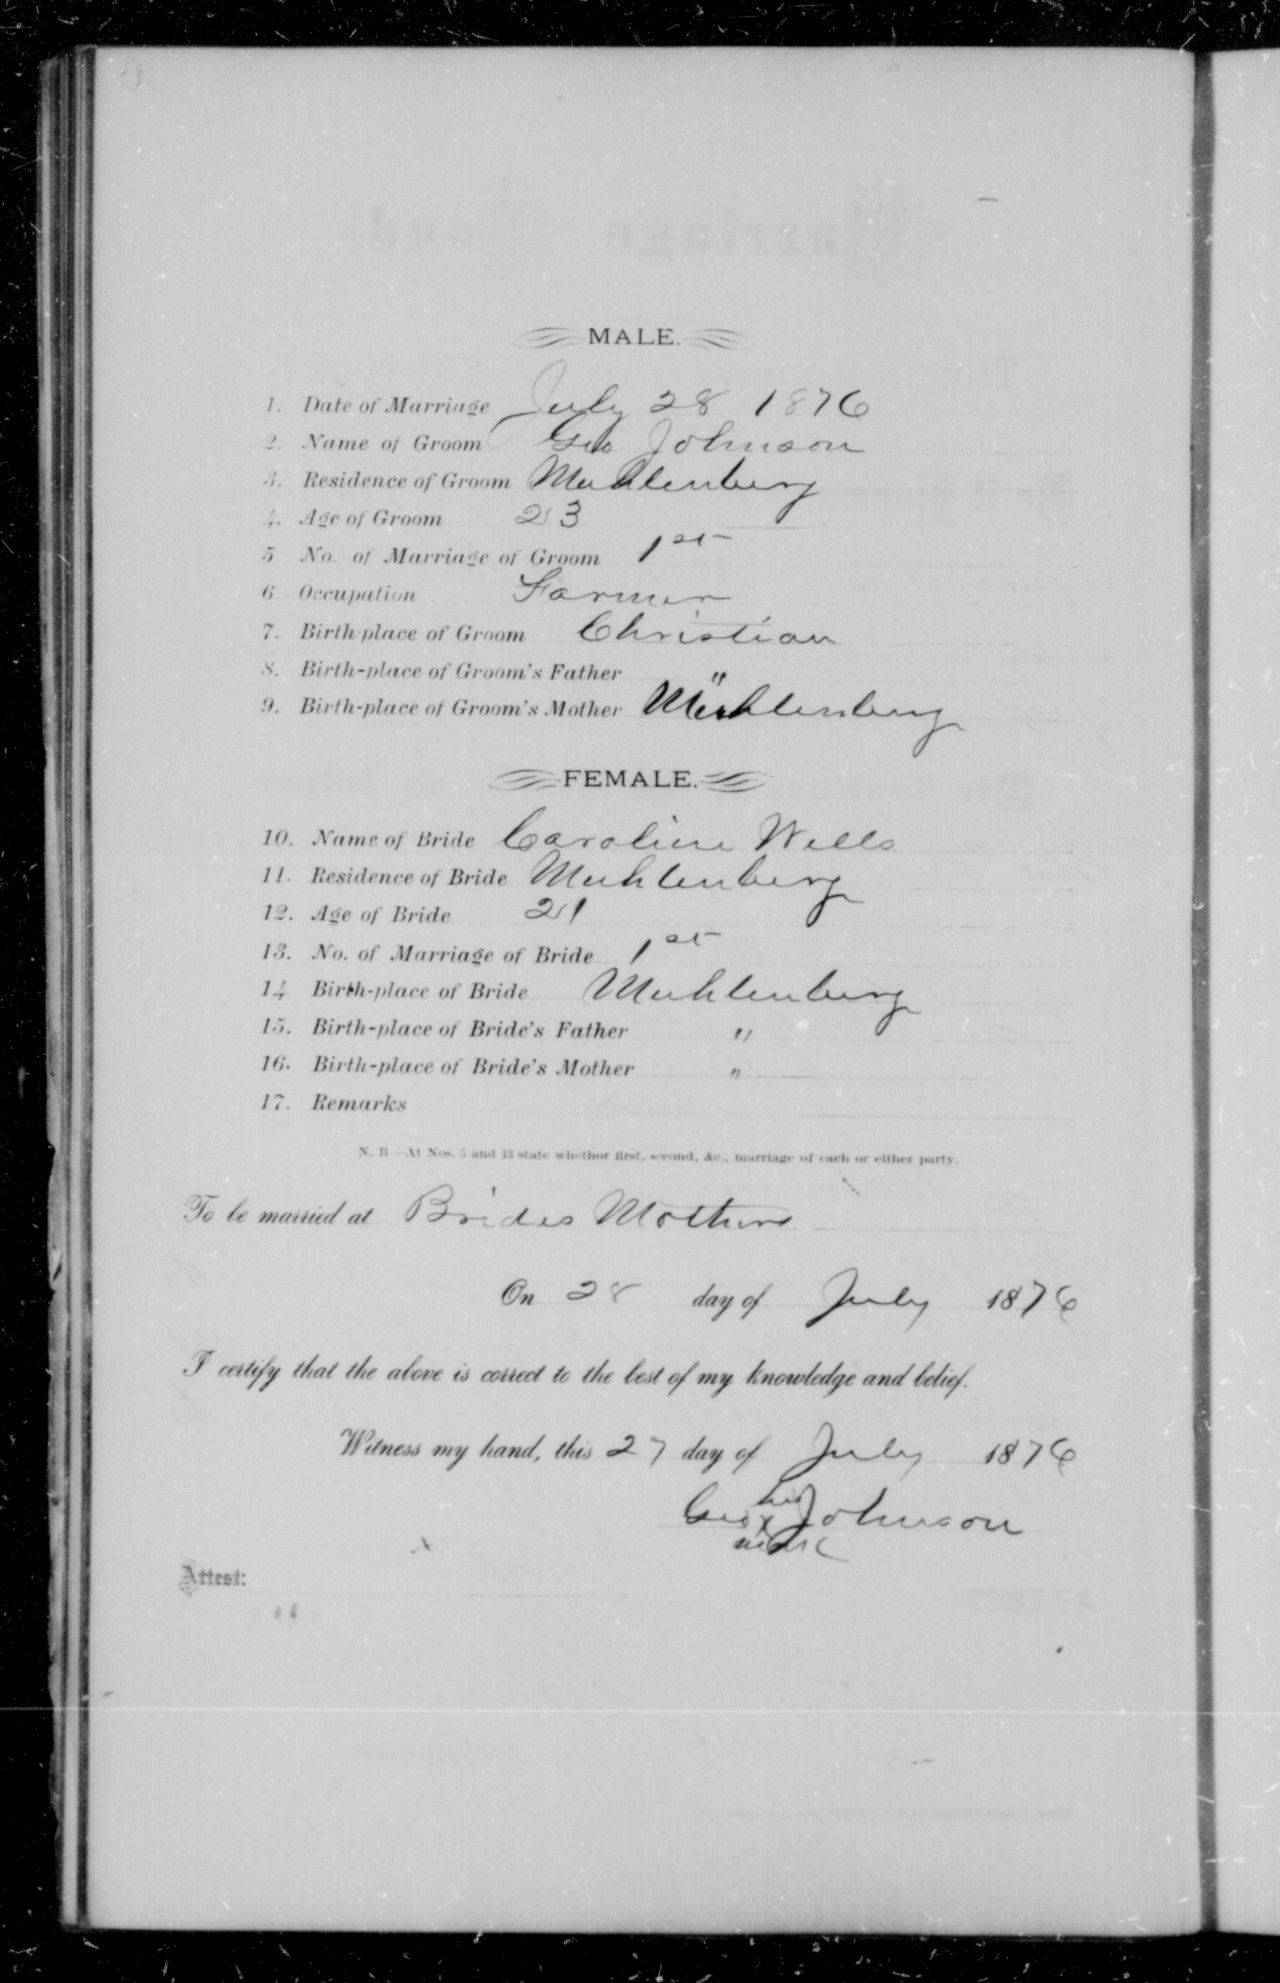 MALE.
1. Date of Marriage July 28 1876
2. Name of Groom Geo Johnson
3. Residence of Groom Muhlenberg
4. Age of Groom 23
5 No. of Marriage of Groom 1st
6 Occupation Farmer
7. Birth-place of Groom Christian
8. Birth-place of Groom's Father "
9. Birth-place of Groom's Mother Muhlenberg
FEMALE.
10. Name of Bride Caroline Wells
11. Residence of Bride Muhlenberg
12. Age of Bride 21
13. No. of Marriage of Bride 1st
14 Birth-place of Bride Muhlenberg
15. Birth-place of Bride's Father "
16. Birth-place of Bride's Mother "
17. Remarks
N. B—At Nos. 5 and 13 state whethor first, second, &c., marriage of each or either party.
To be married at Brides Mothers
On 28 day of July 1876
I certify that the above is correct to the best of my knowledge and belief.
Witness my hand, this 27 day of July 1876
his
Geo x Johnson
mark
Attest: